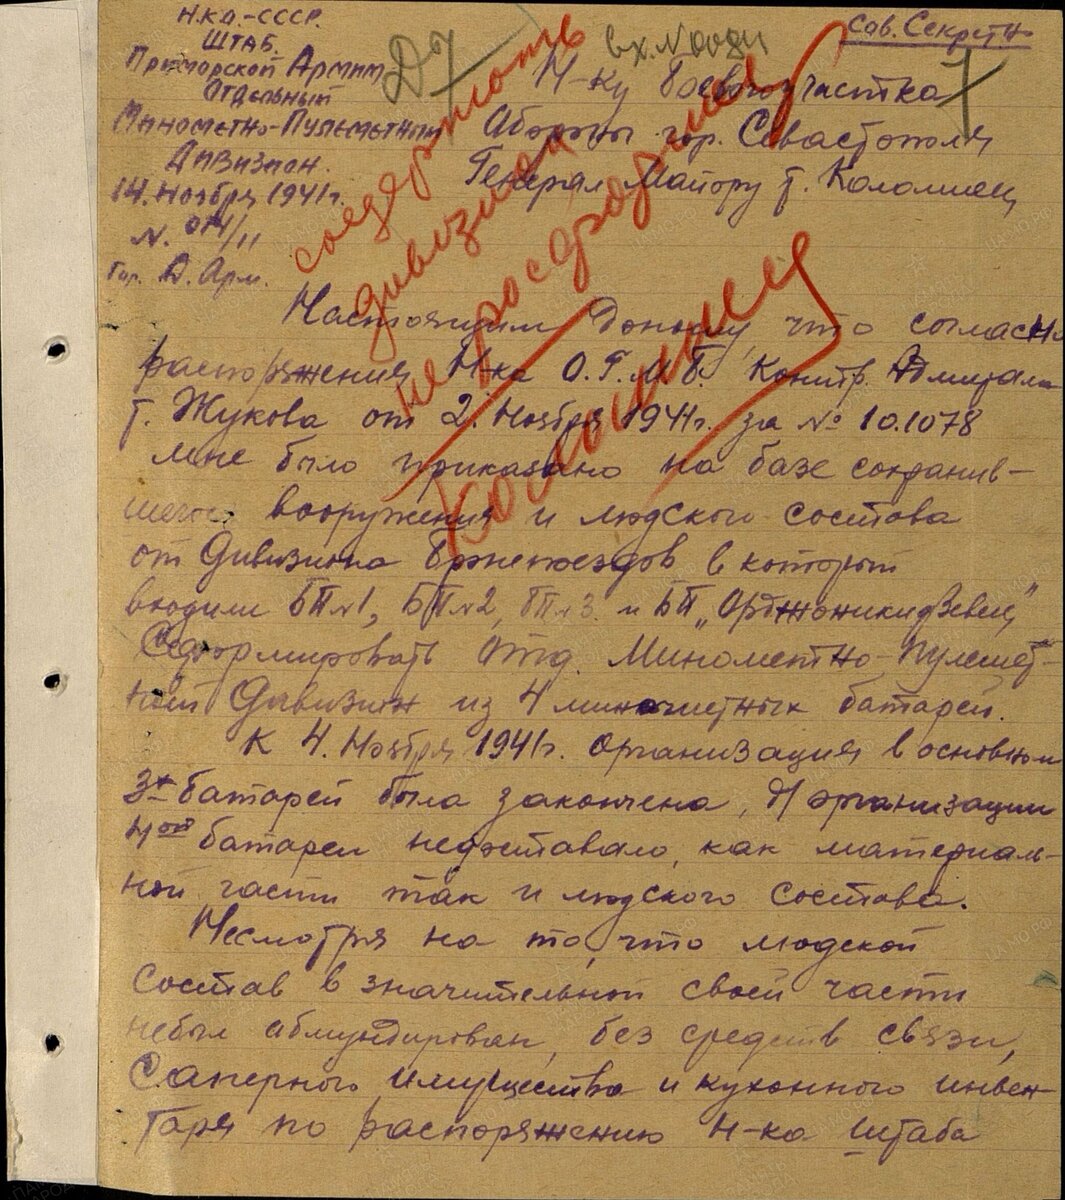 Н.К.О.-СССР.
ШТАБ.
Приморской Армии
Отдельный
Минометно-Пулеметный
Дивизион.
14. Ноября 1941г.
N. 074/11
Гор. Д. Арм.
Сов. Секретно
Н-ку боевого участка
Обороны гор. Севастополя
Генерал Майору т. Коломиец
Настоящим доношу что согласно
распоряжения Н-ка О.Г.М.Б. Контр. Адмирала
т. Жукова от 2. Ноября 1941г. за № 10.1078
мне было приказано на базе сохранив-
шегося вооружения и людского состава
от Дивизиона бронепоездов в который
входили БП№1, БП№2, БП№3 и БП „Орджоникидзевец"
Сформировать Отд. Минометно-Пулемет-
ный Дивизион из 4 минометных батарей.
К 4. Ноября 1941г. Организация в основном
3х батарей была закончена, д/организации
4ой батареи недоставало, как материаль-
ной части так и людского состава.
Несмотря на то, что людской
состав в значительной своей части
небыл обмундирован, без средств связи,
Саперного имущества и кухонного инвен-
таря по распоряжению Н-ка Штаба
дивизион
не расформировать
Коломиец